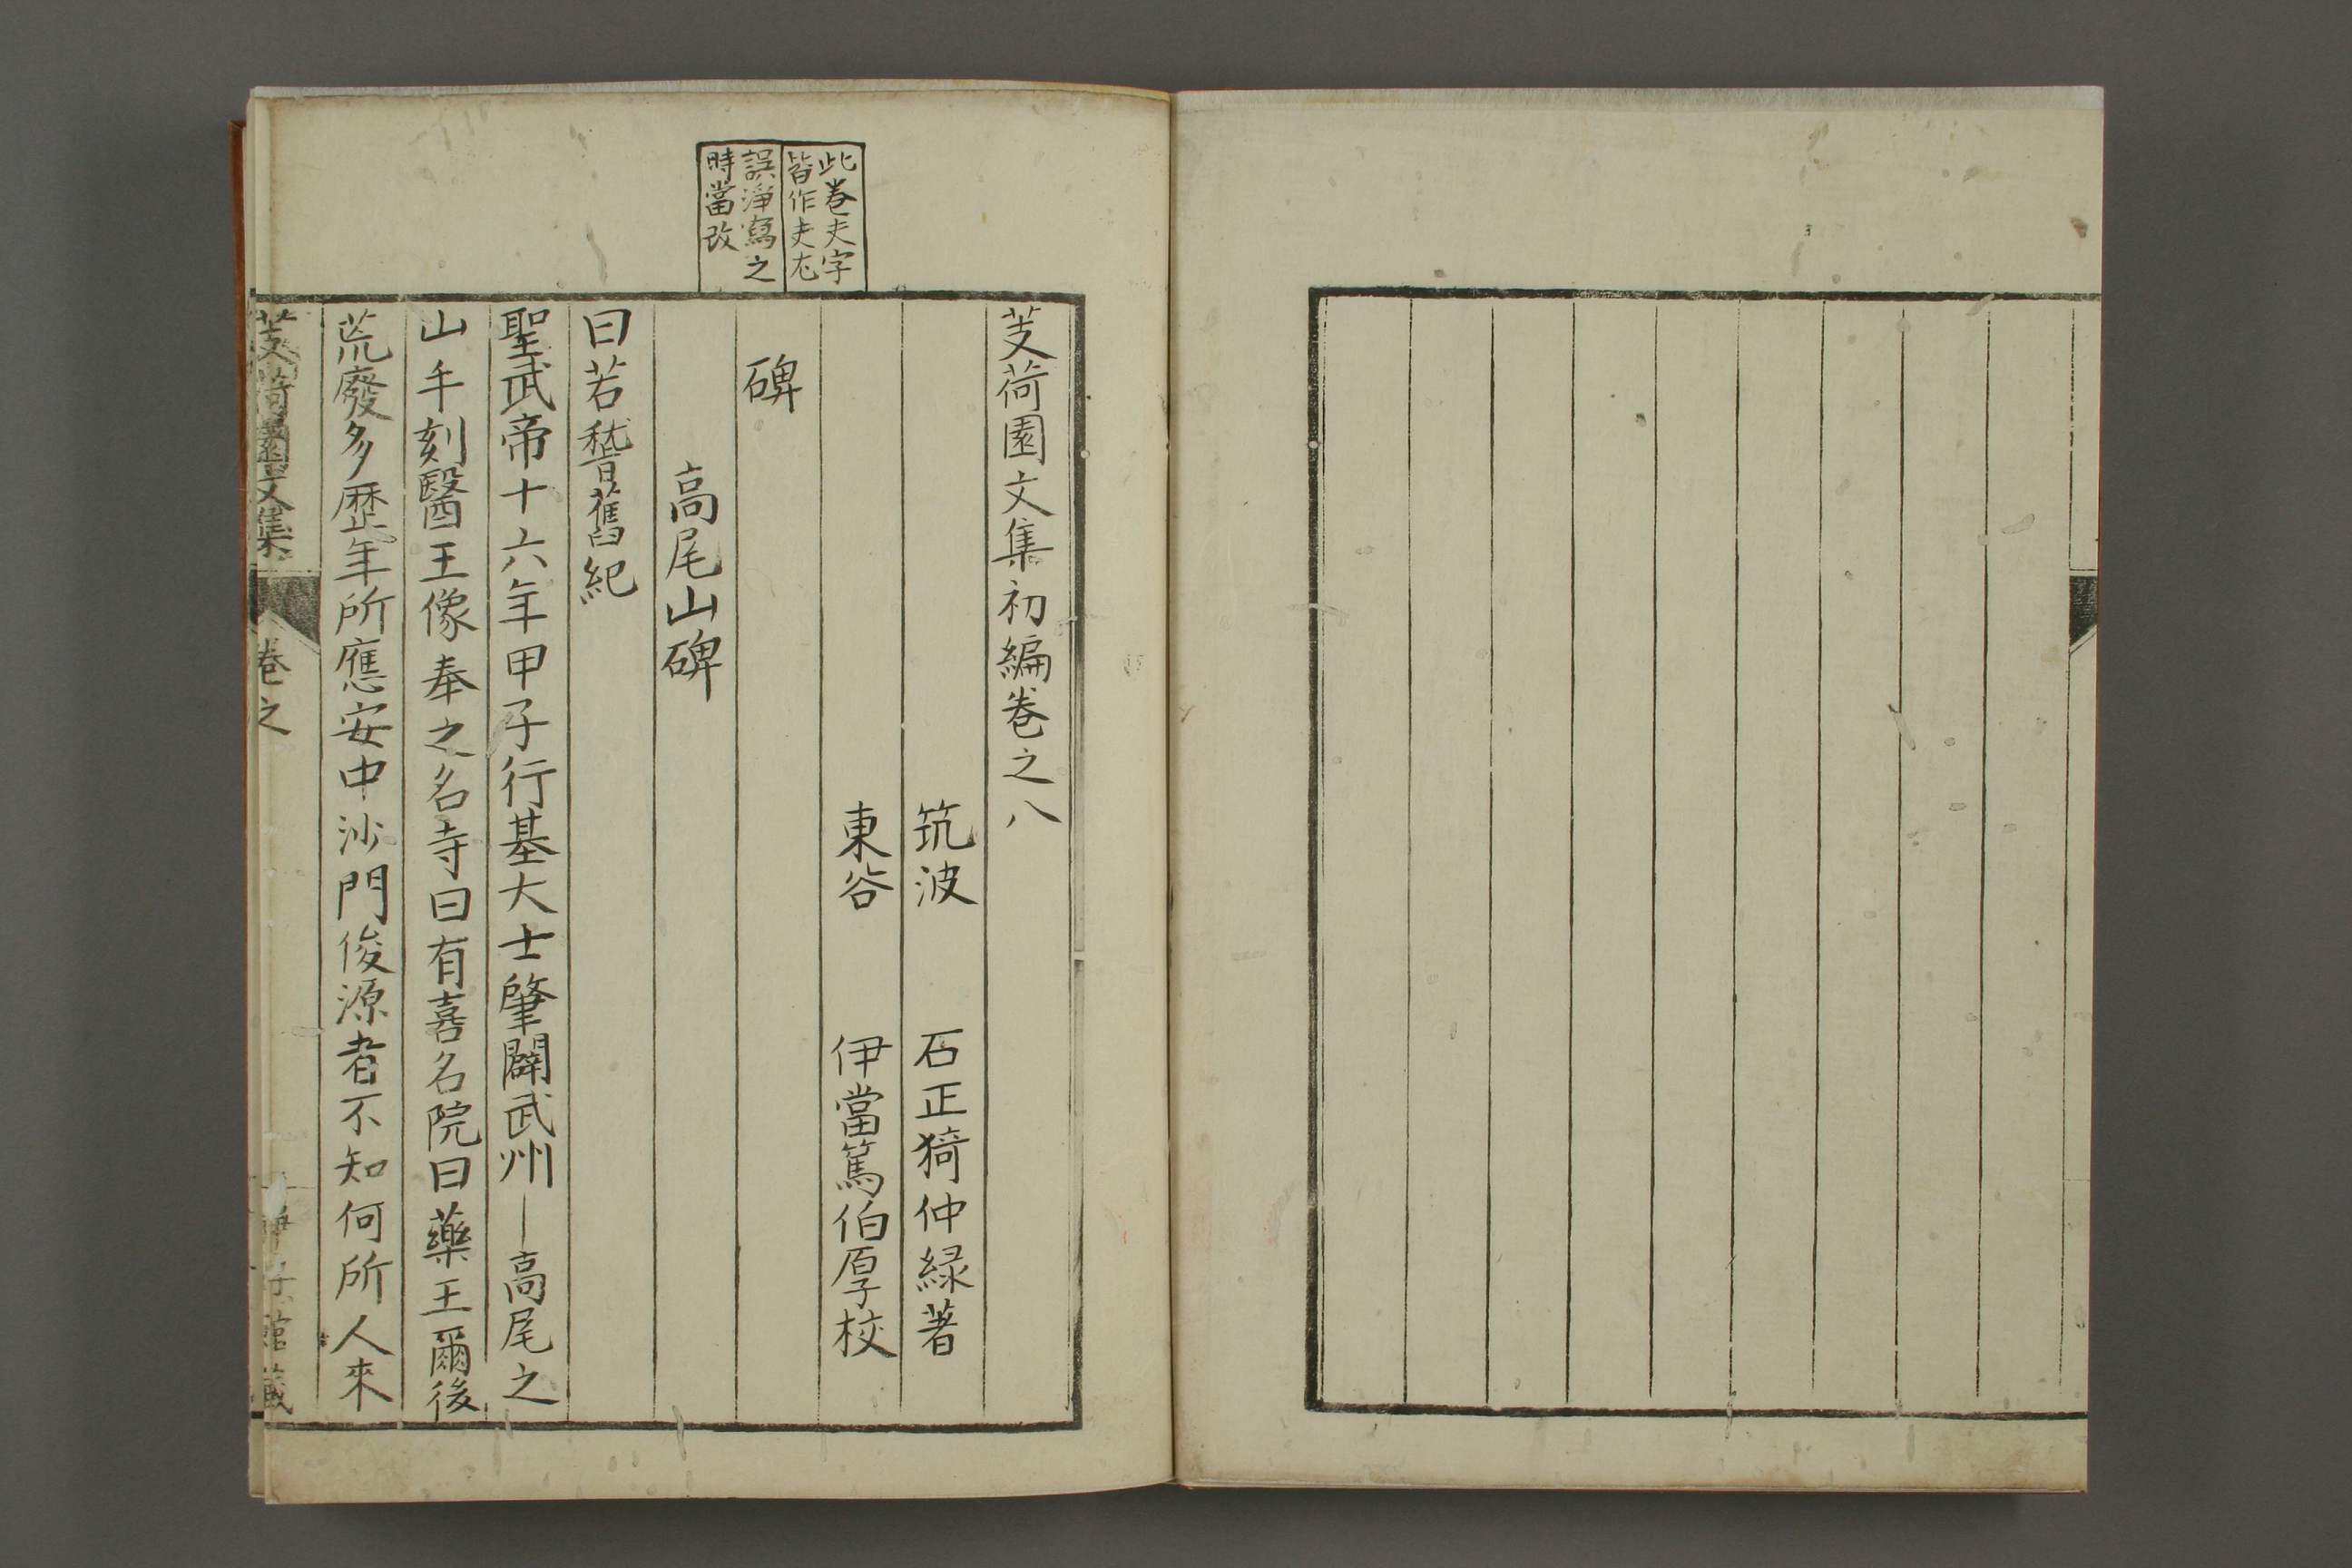 此巻夫字
皆作夫尤
誤淨寫之
時當改
芰荷園文集初編巻之八
筑波　石正猗仲緑著
東谷　伊當篤伯厚校
碑
高尾山碑
曰若嵆舊紀
聖武帝十六年甲子行基大士肇闢武州－高尾之
山手刻醫王像奉之名寺曰有喜名院曰藥王爾後
荒廢多歴年所應安中沙門俊源者不知何所人來
芰荷園文集
巻之
館藏